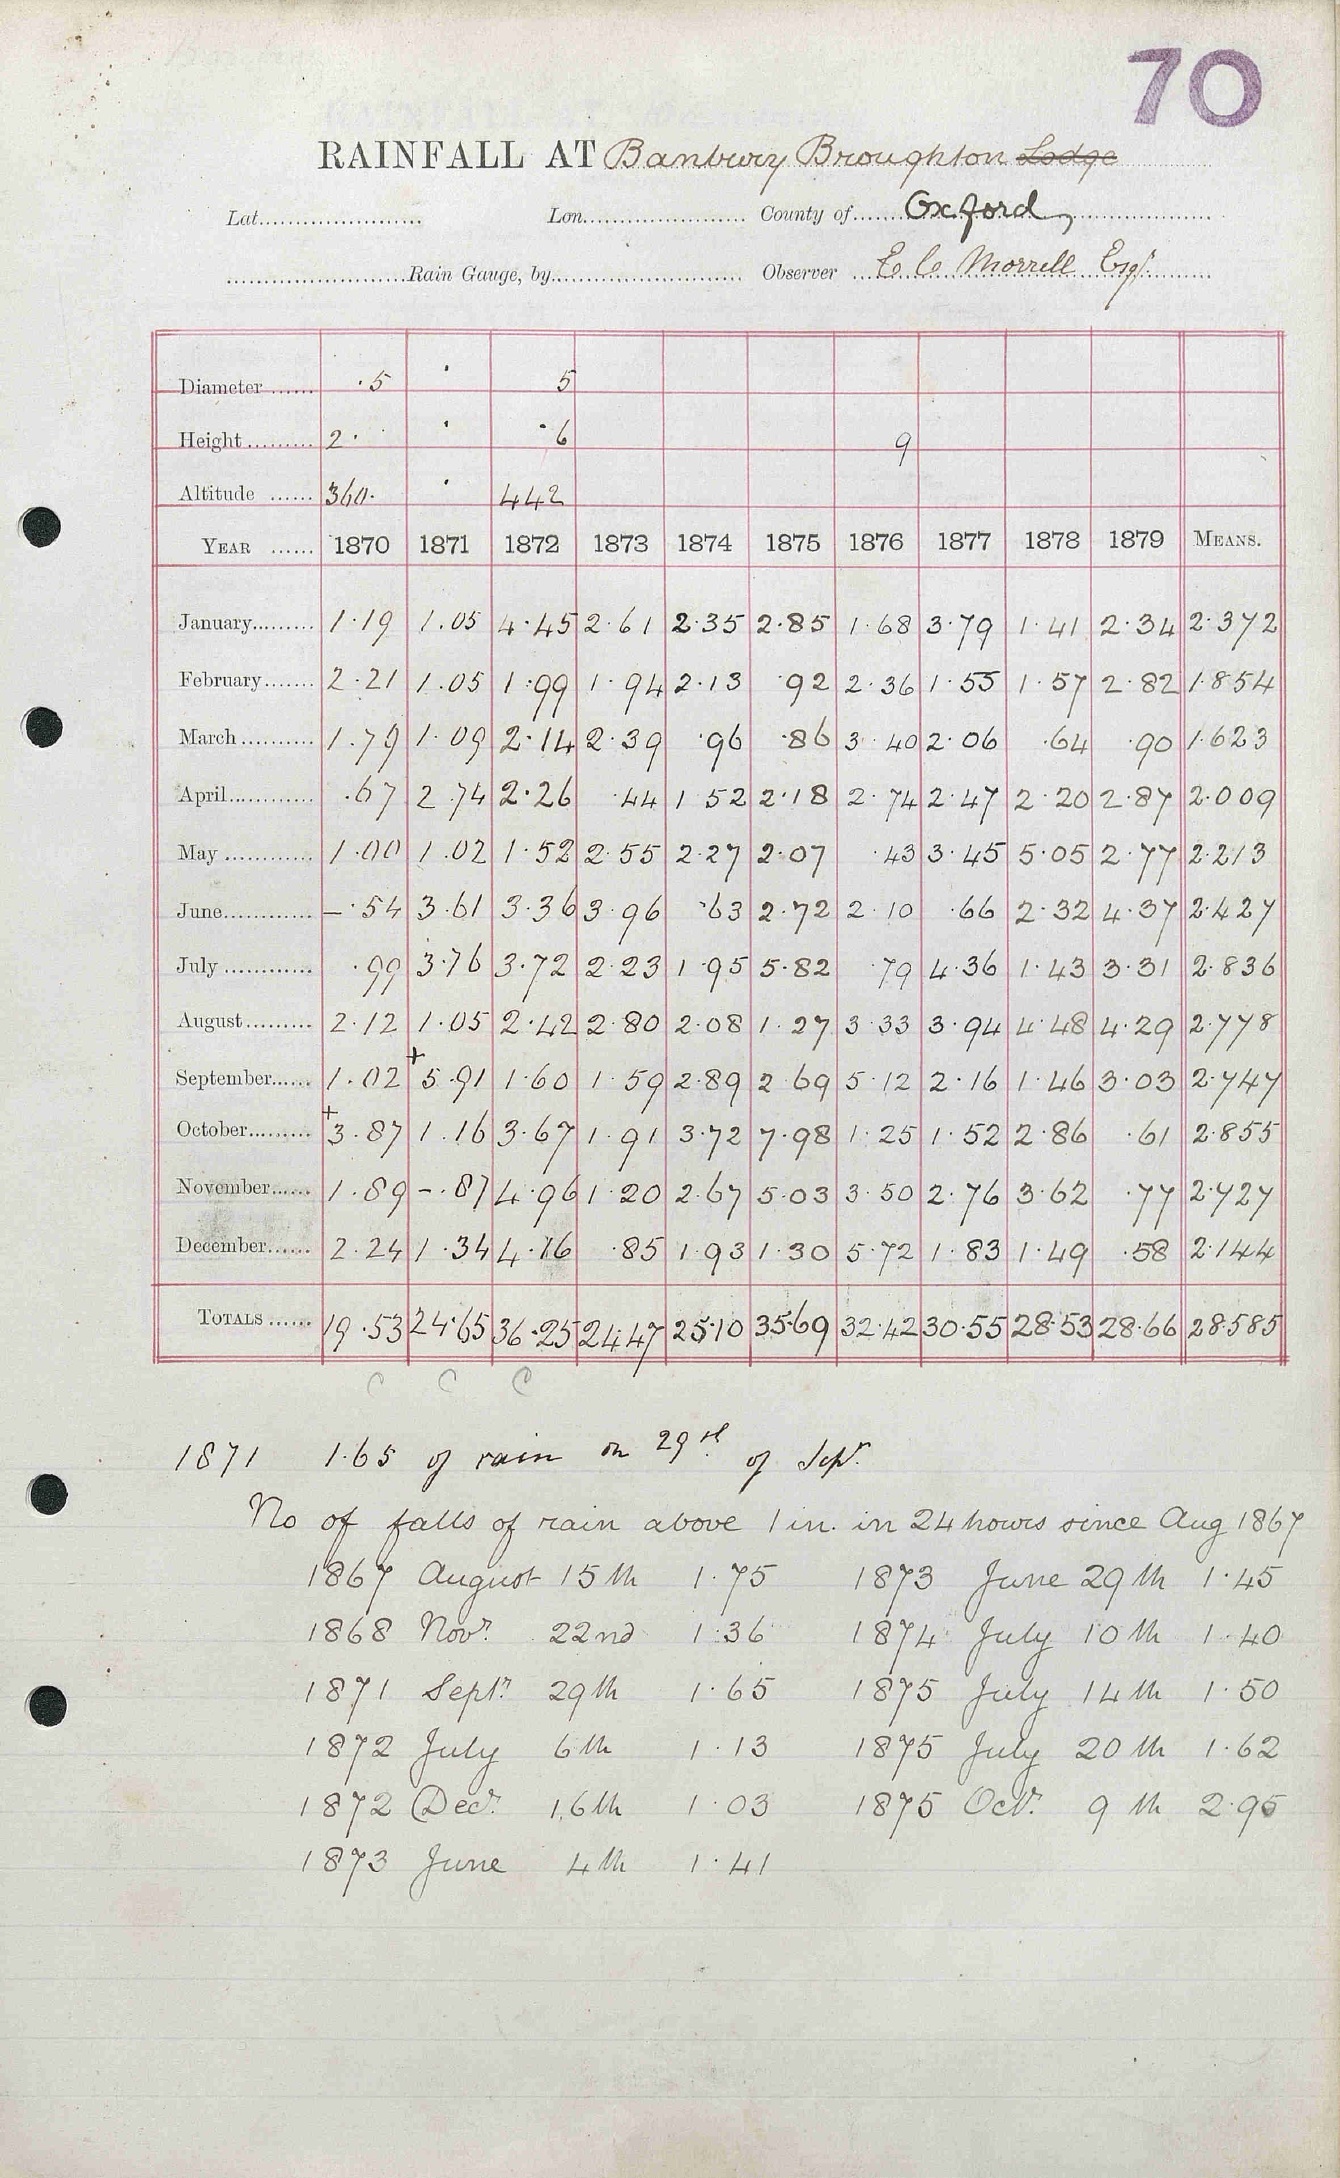 70
RAINFALL AT Banbury Broughton Lodge
Lat. Lon. County of Oxford,
Rain Gauge, by Observer E C Morrell Esqr.
Diameter ·5 · 5
Height 2· · ·6 9
Altitude 360· · 442
YEAR 1870 1871 1872 1873 1874 1875 1876 1877 1878 1879 MEANS.
January 1·19 1.05 4·45 2·61 2·35 2·85 1·68 3·79 1·41 2·34 2·372
February 2·21 1.05 1·99 1·94 2·13 ·92 2·36 1·55 1·57 2·82 1·854
March 1·79 1·09 2·14 2·39 ·96 ·86 3·40 2·06 ·64 ·90 1·623
April ·67 2.74 2·26 ·44 1 52 2·18 2·74 2·47 2·20 2·87 2·009
May 1·00 1.02 1·52 2·55 2·27 2·07 ·43 3·45 5·05 2·77 2·213
June –·54 3·61 3·36 3·96 ·63 2·72 2·10 ·66 2·32 4·37 2·427
July ·99 3·76 3·72 2·23 1·95 5·82 ·79 4·36 1·43 3·31 2·836
August 2·12 1·05 2·42 2·80 2·08 1·27 3·33 3·94 4·48 4·29 2·778
September 1·02 +5·91 1·60 1·59 2·89 2 69 5·12 2·16 1·46 3·03 2·747
October +3·87 1.16 3·67 1·91 3·72 7·98 1·25 1·52 2·86 ·61 2·855
November 1·89 –·87 4·96 1·20 2·67 5·03 3·50 2·76 3·62 ·77 2·727
December 2·24 1·34 4·16 ·85 1·93 1·30 5·72 1·83 1·49 ·58 2·144
TOTALS 19·53 24·65 36·25 24·47 25·10 35·69 32·42 30·55 28·53 28·66 28·585
C C C
1871 1·65 of rain on 29th of Sepr.
No of falls of rain above 1 in. in 24 hours since Aug 1867
1867 August 15th 1·75 1873 June 29th 1·45
1868 Novr. 22nd 1·36 1874 July 10th 1·40
1871 Septr. 29th 1·65 1875 July 14th 1·50
1872 July 6th 1·13 1875 July 20th 1·62
1872 Decr. 16th 1·03 1875 Octr. 9th 2·95
1873 June 4th 1·41